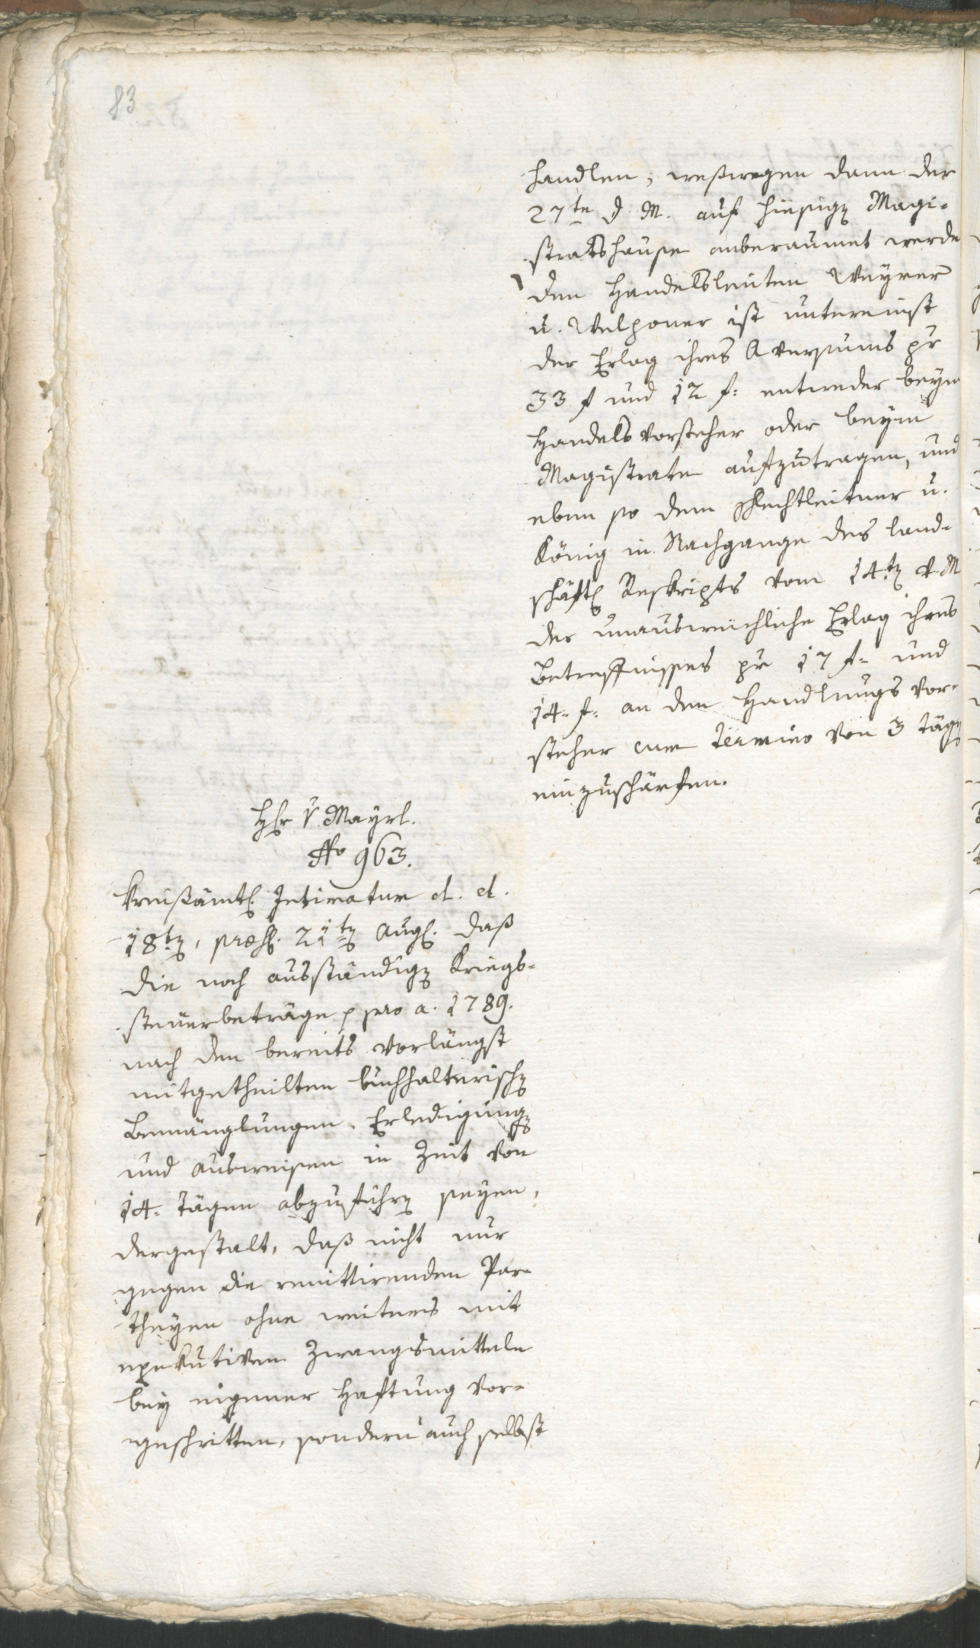 83
handlen, weßwegen dann der
27te d. M. auf hiesigen Magi-
stratshause anberaumet werde
Den Handelsleuten Mayrer
u. Welponer ist untereinst
der Erlag ihres Aversums pr
33 f und 12 f: entweder beym
Handels Vorsteher oder beym
Magistrate aufzutragen, und
eben so dem Schlechtleitner u.
König in Nachgange des land-
schäftl Reskripts vom 14ten v. M
der unausweichliche Erlag ihres
Betreffnisses pr 17 f: und
14. f: an den Handlungs Vor-
steher cum Termino von 3 Tägen
einzuschärfen.
Hr v Mayrl.
No 963.
Kreisämtl Intimatum d. d.
18ten, præs. 21ten Aug. daß
die noch ausständigen Kriegs-
steuerbeträge pro a. 1789.
nach den bereits vorlängst
mitgetheilten buchhalterischen
Bemänglungen, Erledigungen
und Ausweisen in Zeit von
14. Tägen abzuführen seyen,
dergestalt, daß nicht nur
gegen die renittirenden Par-
theyen ohne weiters mit
exekutiven Zwangsmitteln
bey eigener Haftung vor-
geschritten, sondern auch selbst